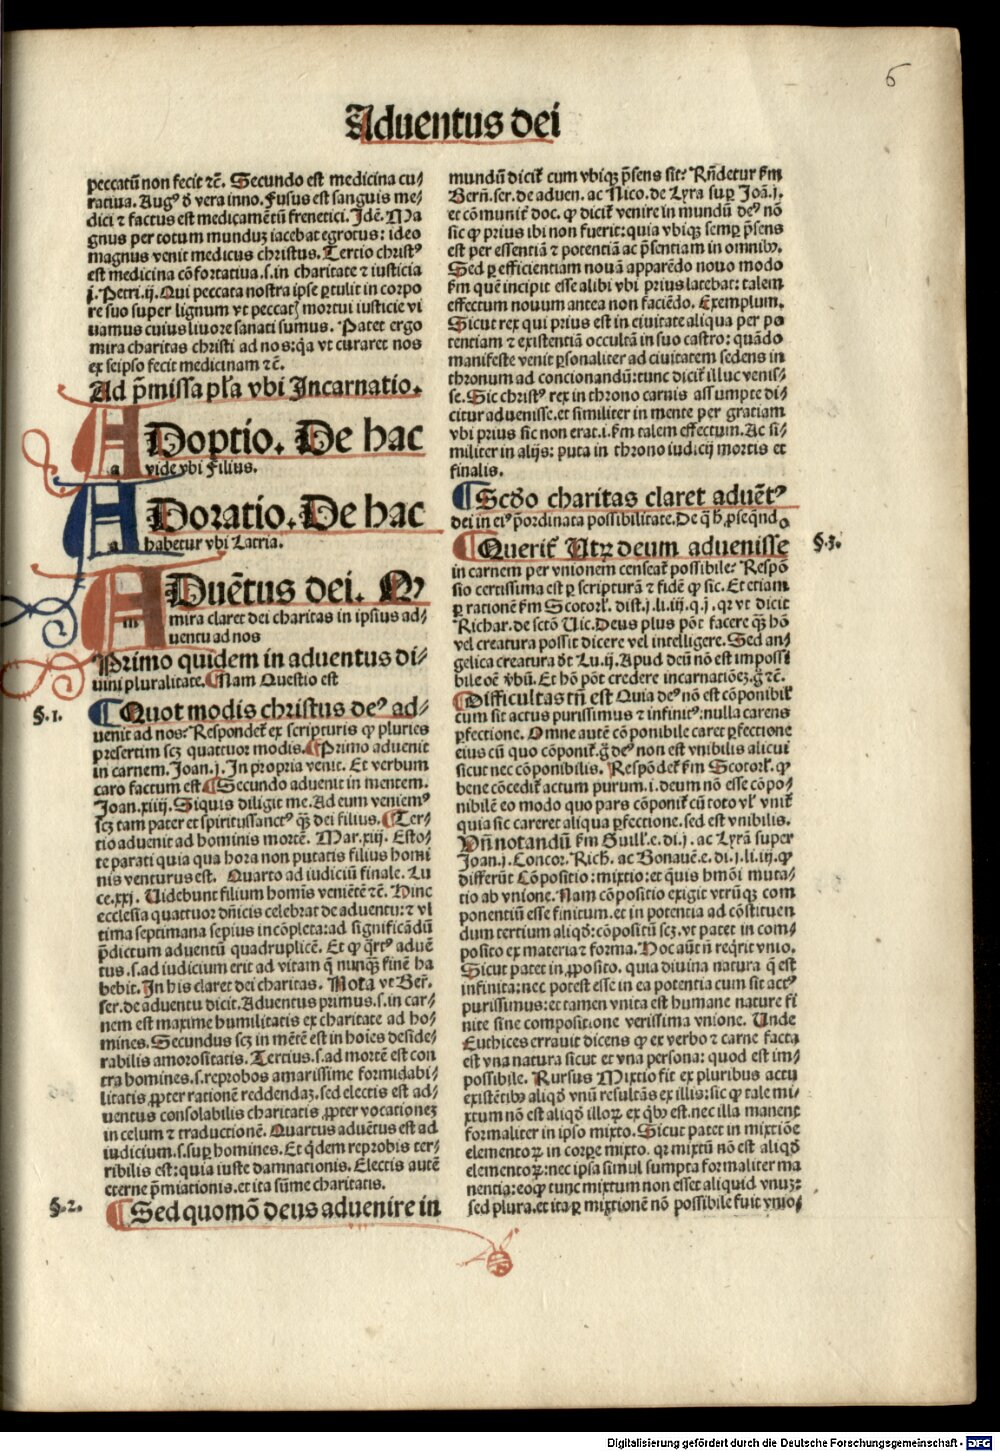 6
Aduentus dei
peccatū non fecit ⁊c̄. Secundo est medicina cu⸗
ratiua. Augꝰ d̄ vera inno. Fusus est sanguis me⸗
dici ⁊ factus est medicamētū frenetici. Idē. Ma
gnus per totum munduꝫ iacebat egrotus: ideo
magnus venit medicus christus. Tercio christꝰ
est medicina cōfortatiua .s. in charitate ⁊ iusticia
j. Petri. ij. Qui peccata nostra ipse ꝑtulit in corpo
re suo super lignum vt peccatꝭ mortui iusticie vi
uamus cuius liuore sanati sumus. Patet ergo
mira charitas christi ad nos: q̄a vt curaret nos
ex seipso fecit medicinam ⁊c̄.
Ad p̄missa pl̄a vbi Incarnatio.
ADoptio. De hac
vide vbi Filius.
ADoratio. De hac
habetur vbi Latria.
ADuētus dei. M
mira claret dei charitas in ipsius ad⸗
uentu ad nos
Primo quidem in aduentus di⸗
uini pluralitate. Nam Questio est
§. 1. Quot modis christus deꝰ ad⸗
uenit ad nos: Respondet̄ ex scripturis ꝙ pluries
presertim scꝫ quattuor modis. Primo aduenit
in carnem. Joan. j. In propria venit. Et verbum
caro factum est Secundo aduenit in mentem.
Joan. xiiij. Siquis diligit me. Ad eum veniemꝰ
scꝫ tam pater et spiritussanctꝰ qꝫ̄ dei filius. Ter⸗
tio aduenit ad hominis mortē. Mar. xiij. Esto⸗
te parati quia qua hora non putatis filius homi
nis venturus est. Quarto ad iudiciū finale. Lu
ce. xxj. Uidebunt filium homīs veniētē ⁊c̄. Hinc
ecclesia quattuor dn̄icis celebrat de aduentu: ⁊ vl
tima septimana sepius incōpleta: ad significādū
p̄dictum aduentū quadruplicē. Et ꝙ q̄rtꝰ aduē
tus .s. ad iudicium erit ad vitam q̄ nunqꝫ̄ finē ha
bebit. In his claret dei charitas. Nota vt Ber̄.
ser. de aduentu dicit. Aduentus primus .s. in car⸗
nem est maxime humilitatis ex charitate ad ho⸗
mines. Secundus scꝫ in mētē est in hoīes deside⸗
rabilis amorositatis. Tertius .s. ad mortē est con
tra homines .s. reprobos amarissime formidabi⸗
litatis ꝓpter rationē reddendaꝫ. sed electis est ad⸗
uentus consolabilis charitatis ꝓpter vocationeꝫ
in celum ⁊ traductionē. Quartus aduētus est ad
iudicium .s. suꝑ homines. Et q̄dem reprobis ter⸗
ribilis est: quia iuste damnationis. Electis autē
eterne p̄miationis. et ita sūme charitatis.
§. 2. Sed quomō deus aduenire in
mundū dicit̄ cum vbiqꝫ p̄sens sit: Rn̄detur ẜm
Berñ. ser. de aduen. ac Nico. de Lyra suꝑ Joā. j.
et cōmunit̄ doc. ꝙ dicit̄ venire in mundū deꝰ nō
sic ꝙ prius ibi non fuerit: quia vbiqꝫ semꝑ p̄sens
est per essentiā ⁊ potentiā ac p̄sentiam in omnibꝫ.
Sed ꝑ efficientiam nouā apparēdo nouo modo
ẜm quē incipit esse alibi vbi prius latebat: talem
effectum nouum antea non faciēdo. Exemplum.
Sicut rex qui prius est in ciuitate aliqua per po
tentiam ⁊ existentiā occultā in suo castro: quādo
manifeste venit ꝑsonaliter ad ciuitatem sedens in
thronum ad concionandū: tunc dicit̄ illuc venis⸗
se. Sic christꝰ rex in throno carnis assumpte di⸗
citur aduenisse. et similiter in mente per gratiam
vbi prius sic non erat .i. ẜm talem effectum. Ac si⸗
militer in alijs: puta in throno iudicij mortis et
finalis.
Scd̄o charitas claret aduētꝰ
dei in eiꝰ p̄ordinata possibilitate. De q̄ h̄ ꝓseq̄ndo
§. 3. Querit̄ Utꝝ deum aduenisse
in carnem per vnionem censeat̄ possibile: Respō
sio certissima est ꝑ scripturā ⁊ fidē ꝙ sic. Et etiam
ꝑ rationē ẜm Scotorꝭ. dist. j. li. iij. q. j. qꝛ vt dicit
Richar. de sctō Uic. Deus plus pōt facere qꝫ̄ hō
vel creatura possit dicere vel intelligere. Sed an⸗
gelica creatura d̄t Lu. ij. Apud deū nō est impossi
bile oē v̄bū. Et hō pōt credere incarnatiōeꝫ. g̊ ⁊c̄.
Difficultas tn̄ est Quia deꝰ nō est cōponibil̄
cum sit actus purissimus ⁊ infinitꝰ: nulla carens
ꝑfectione. Omne autē cōponibile caret ꝑfectione
eius cū quo cōponit̄. g̊ deꝰ non est vnibilis alicui
sicut nec cōponibilis. Respōdet̄ ẜm Scotorꝭ. ꝙ
bene cōcedit̄ actum purum .i. deum nō esse cōpo⸗
nibilē eo modo quo pars cōponit̄ cū toto vl̄ vnit̄
quia sic careret aliqua ꝑfectione. sed est vnibilis.
Un̄ notandū ẜm Guill. e. di. j. ac Lyrā super
Joan. j. Concor. Rich. ac Bonauē. e. di. j. li. iij. ꝙ
differūt Cōpositio: mixtio: et quis hmōi muta⸗
tio ab vnione. Nam cōpositio exigit vtrūqꝫ com
ponentiū esse finitum. et in potentia ad cōstituen
dum tertium aliqd̄: cōpositū scꝫ. vt patet in com⸗
posito ex materia ⁊ forma. Hoc aūt n̄ reqͥrit vnio.
Sicut patet in ꝓposito. quia diuina natura q̄ est
infinita: nec potest esse in ea potentia cum sit actꝰ
purissimus: et tamen vnita est humane nature fi
nite sine compositione verissima vnione. Unde
Euthices errauit dicens ꝙ ex verbo ⁊ carne facta
est vna natura sicut et vna persona: quod est im⸗
possibile. Rursus Mixtio fit ex pluribus actu
existētibꝫ aliqd̄ vnū resultās ex illis: sic ꝙ tale mi⸗
xtum nō est aliqd̄ illoꝝ ex qͥbꝫ est. nec illa manent
formaliter in ipso mixto. Sicut patet in mixtiōe
elementoꝝ in corꝑe mixto. qꝛ mixtū nō est aliqd̄
elementoꝝ: nec ipsa simul sumpta formaliter ma
nentia: eoꝙ tunc mixtum non esset aliquid vnuꝫ:
sed plura. et ita ꝑ mixtionē nō possibile fuit vnio⸗
Digitalisierung gefördert durch die Deutsche Forschungsgemeinschaft - DFG